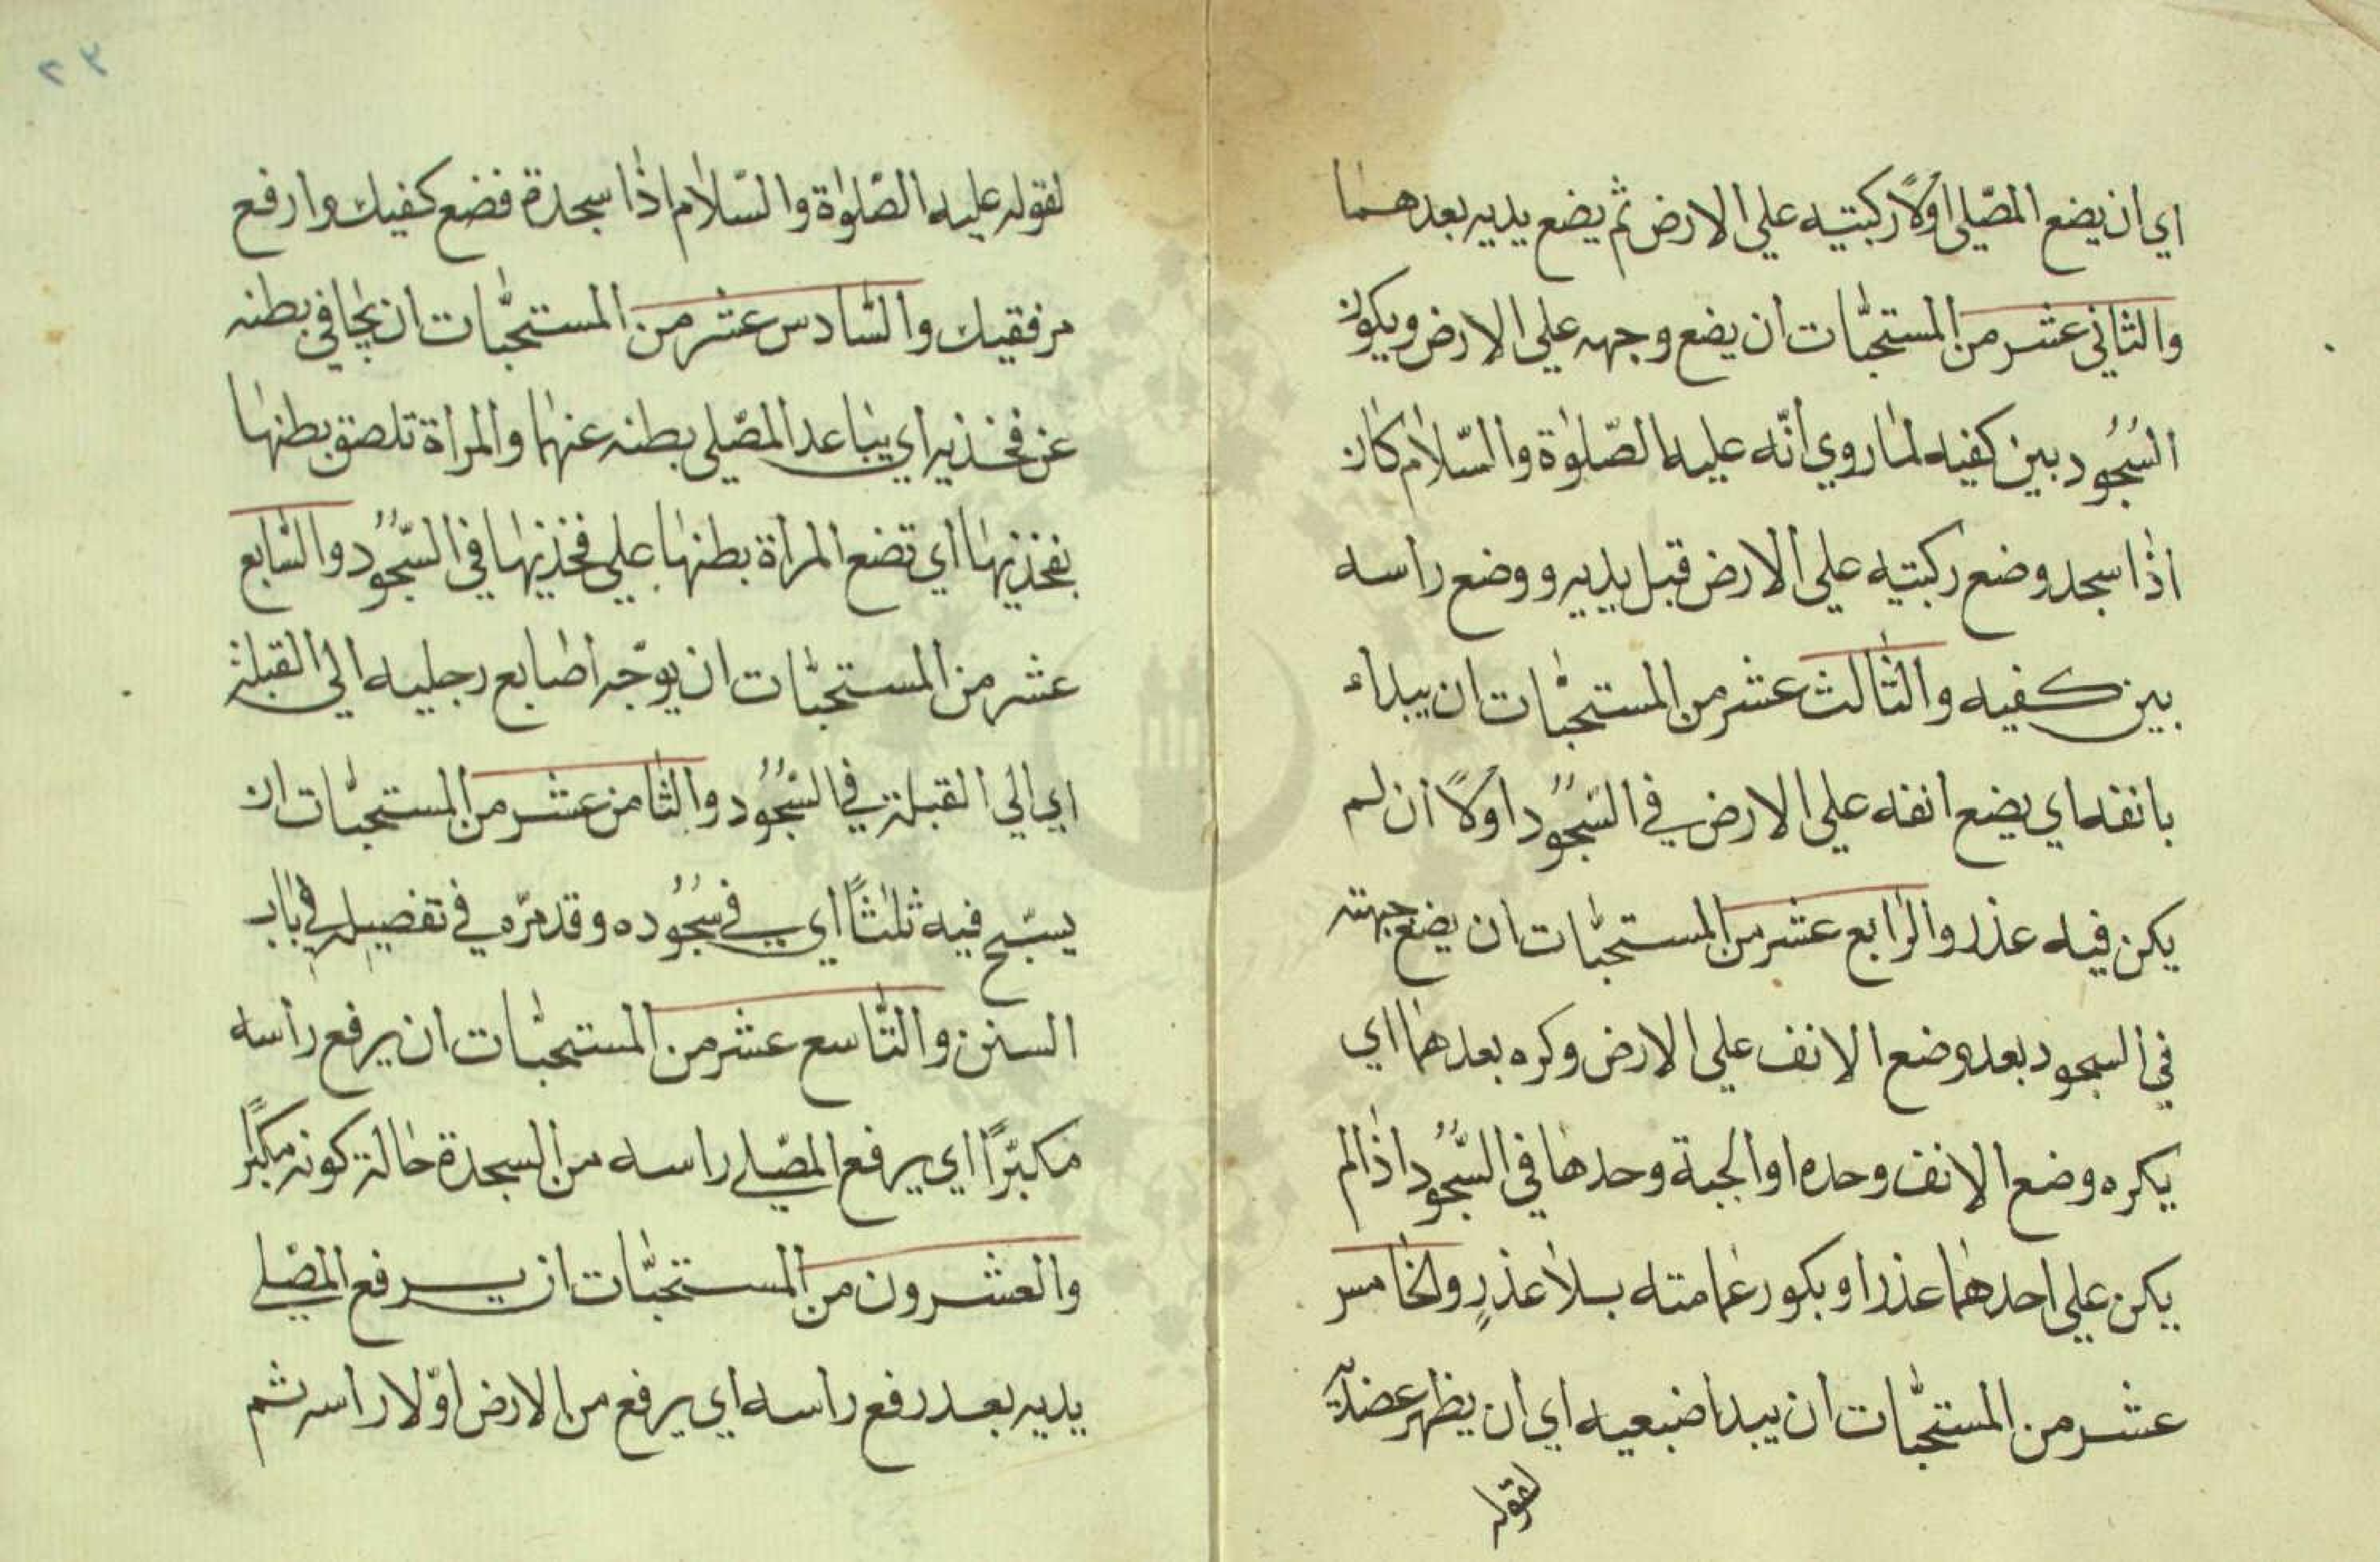 اي ان يضع المصّلي اوّلاً ركبتيه علي الارض ثم يضع يديه بعدهما
والثاني عشر من المستحبّات ان يضع وجهه علي الارض ويكون
السُجُود بين كفيه لما روي انّه عليه الصّلوٰة والسّلام كان
اذا سجد وضع ركبتيه علي الارض قبل يديه ووضع راسه
بين كفيه والثالث عشر من المستحبّات ان يبداء
بانفه اي يضع انفه علي الارض في السُّجُود اولاً ان لم
يكن فيه عذر والرابع عشر من المستحبّات ان يضع جبهته
في السجود بعد وضع الانف علي الارض وكره بعدهما اي
يكره وضع الانف وحده او الجبة وحدها في السُّجُود اذا لم
يكن علي احدهما عذر او بكور عمامته بلا عذرٍ والخامس
عشر من المستحبّات ان يبدا ضبعيه اي ان يظهر عضديه
لقوله
٢٣
لقوله عليه الصّلوٰة والسّلام اذا سجدة فضع كفيك وارفع
مرفقيك والسّادس عشر من المستحبّات ان يجافي بطنه
عن فخذيه اي يباعد المصّلي بطنه عنهما والمراة تلصق بطنها
بفخذيها اي تضع المراة بطنها علي فخذيها في السُّجُود والسّابع
عشر من المستحبّات ان يوجّه اصابع رجليه الي القبلة
اي الي القبلة في السُّجُود والثامن عشر من المستحبّات ان
يسبّح فيه ثلثاً اي في سُجُوده وقد مرّه في تفصيله في باب
السنن والتّاسع عشر من المستحبّات ان يرفع راسه
مكبّرًا اي يرفع المصّلي راسه من السجدة حالة كونه مكبّرًا
والعشرون من المستحبّات ان يرفع المصّلي
يديه بعد رفع راسه اي يرفع من الارض اوّلا راسه ثم